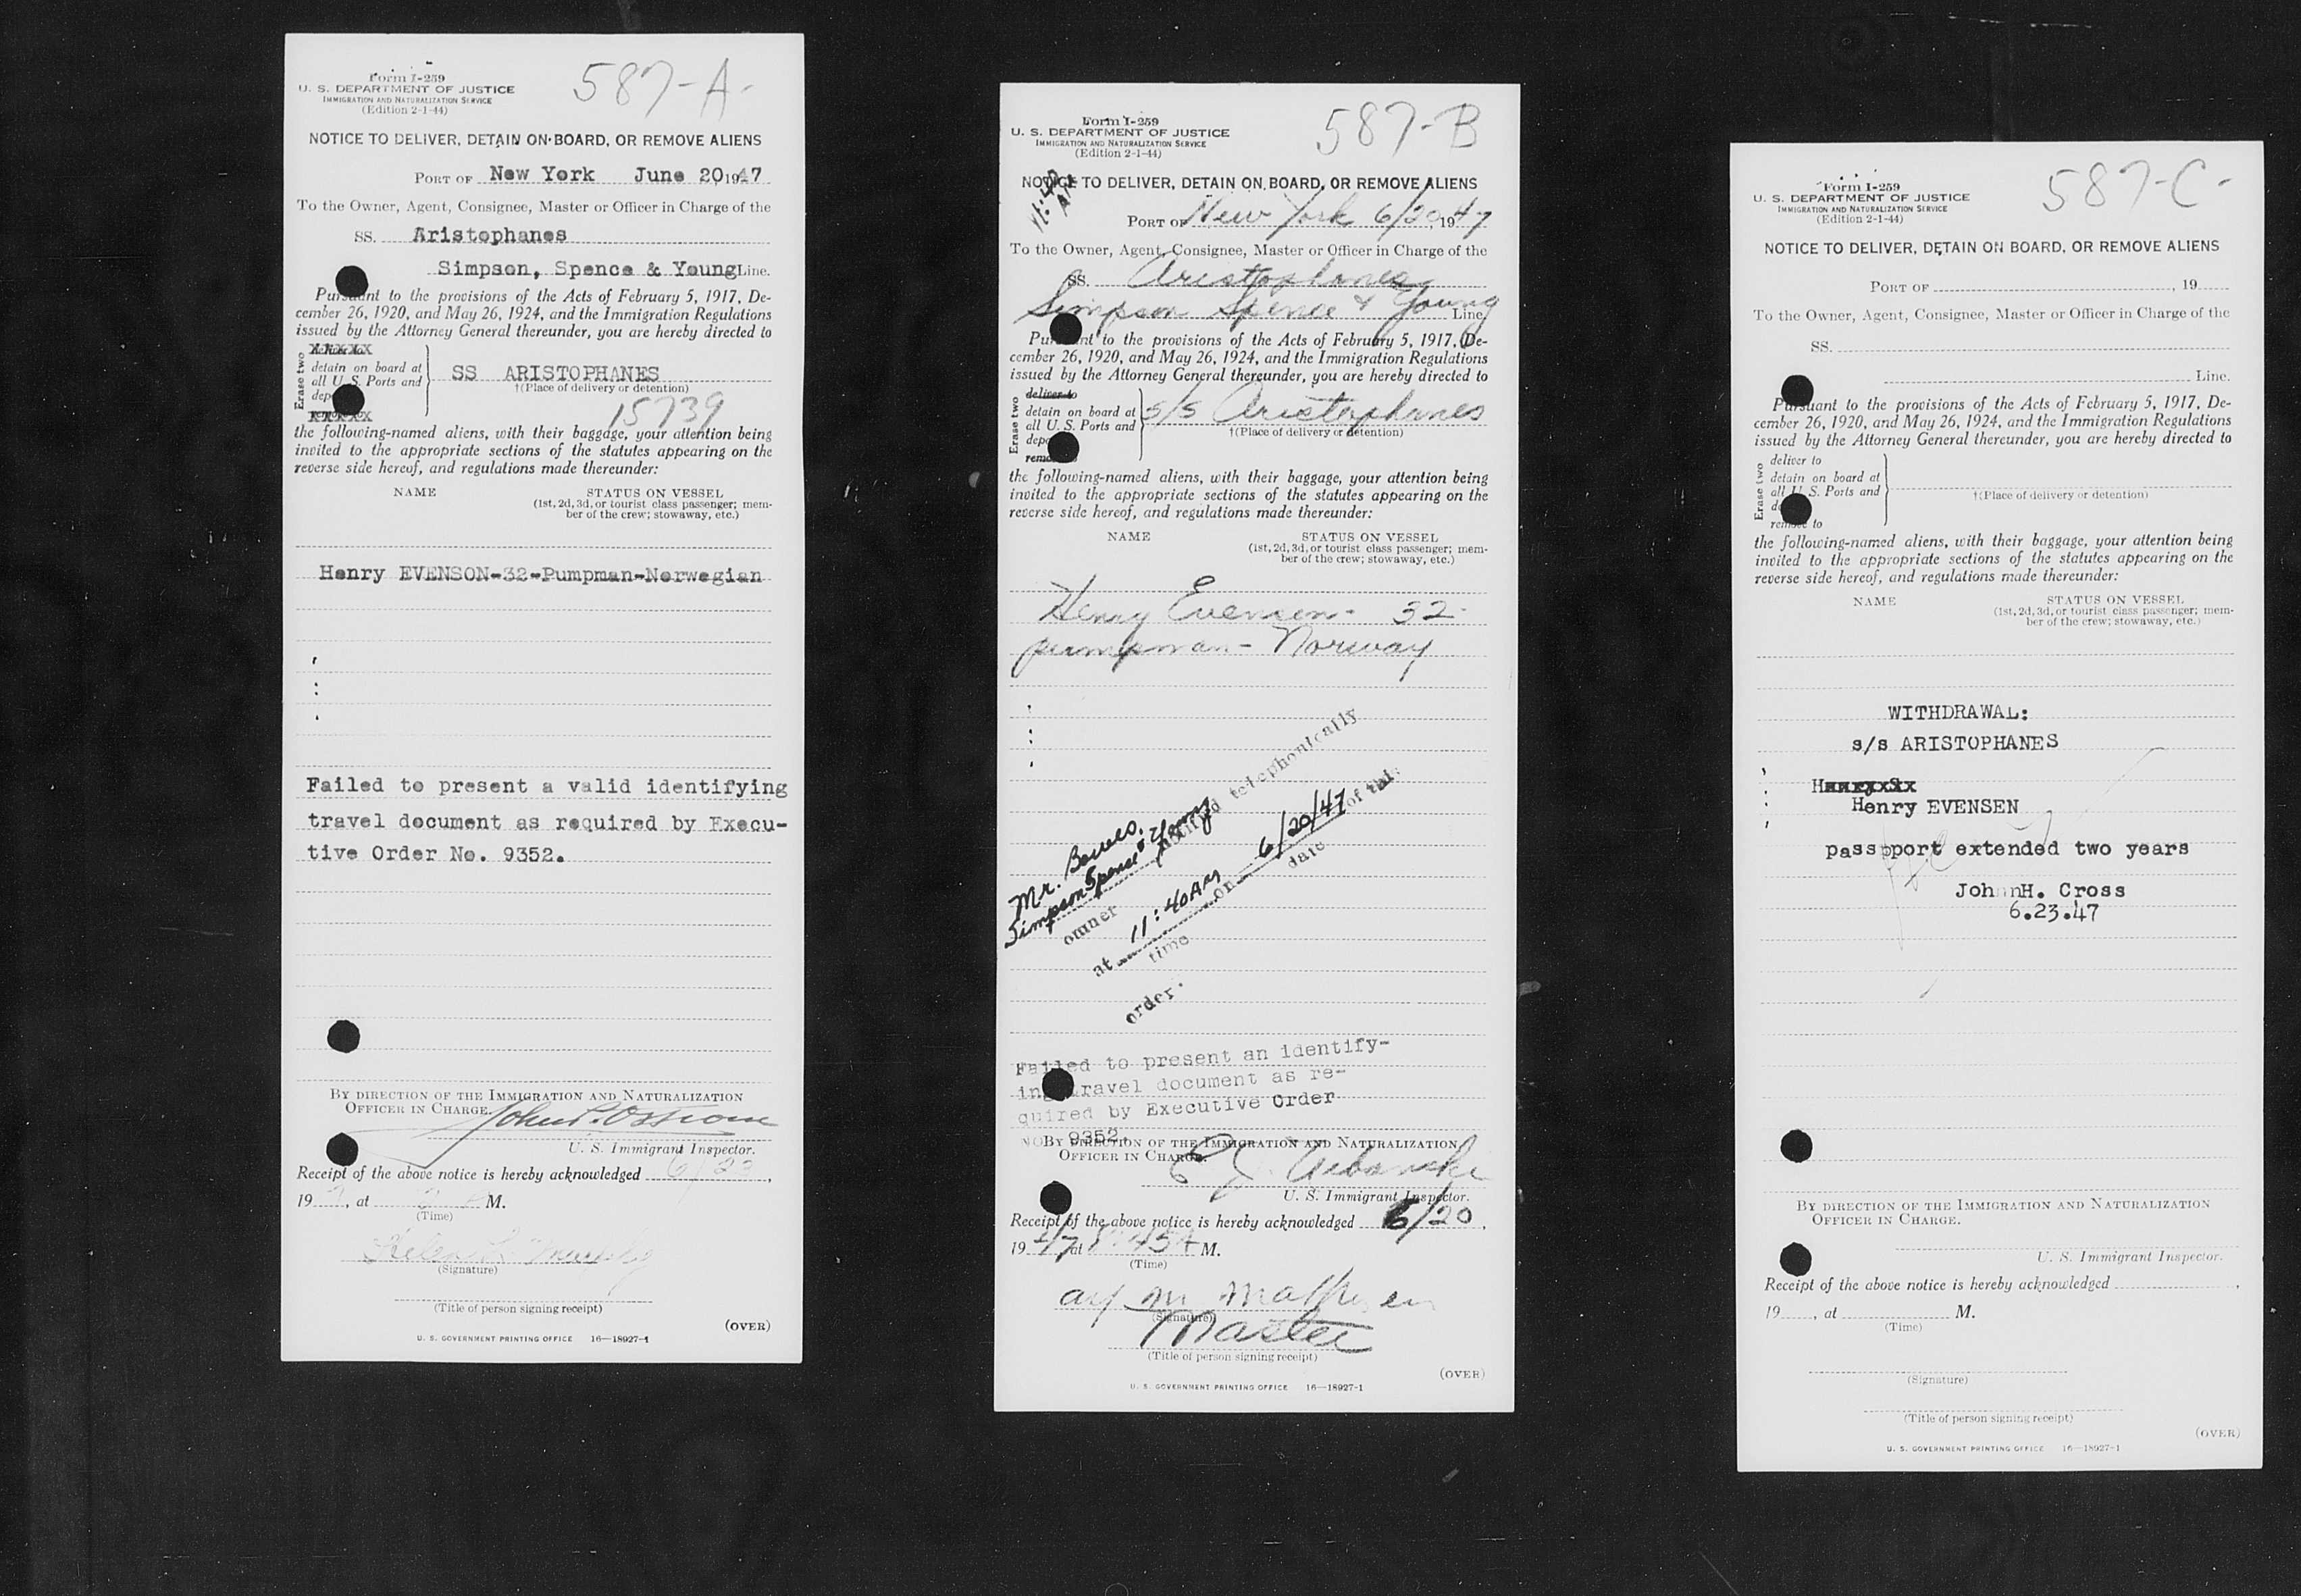 587-A-
Form I-259
U. S. DEPARTMENT OF JUSTICE
IMMIGRATION AND NATURALIZATION SERVICE
(Edition 2-1-44)
NOTICE TO DELIVER, DETAIN ON BOARD, OR REMOVE ALIENS
PORT OF New York June 20 1947
To the Owner, Agent, Consignee, Master or Officer in Charge of the
SS. Aristophanes
Simpson, Spence & Young Line.
Pursuant to the provisions of the Acts of February 5, 1917, De-
cember 26, 1920, and May 26, 1924, and the Immigration Regulations
issued by the Attorney General thereunder, you are hereby directed to
Erase two
detain on board at
all U. S. Ports and
SS ARISTOPHANES
†(Place of delivery or detention)
15739
the following-named aliens, with their baggage, your attention being
invited to the appropriate sections of the statutes appearing on the
reverse side hereof, and regulations made thereunder:
NAME STATUS ON VESSEL
(1st, 2d, 3d, or tourist class passenger; mem-
ber of the crew; stowaway, etc.)
Henry EVENSON-32-Pumpman-Norwegian
Failed to present a valid identifying
travel document as required by Execu-
tive Order No. 9352.
BY DIRECTION OF THE IMMIGRATION AND NATURALIZATION
OFFICER IN CHARGE.
U. S. Immigrant Inspector.
Receipt of the above notice is hereby acknowledged 6/23,
19 , at M.
(Time)
Helen Murphy
(Signature)
(Title of person signing receipt)
(OVER)
U. S. GOVERNMENT PRINTING OFFICE 16—18927-1
587-B
Form I-259
U. S. DEPARTMENT OF JUSTICE
IMMIGRATION AND NATURALIZATION SERVICE
(Edition 2-1-44)
11:40 AM
NOTICE TO DELIVER, DETAIN ON BOARD, OR REMOVE ALIENS
PORT OF New York 6/20, 1947
To the Owner, Agent, Consignee, Master or Officer in Charge of the
SS. Aristophanes
Simpson Spence & Young Line
Pursuant to the provisions of the Acts of February 5, 1917, De-
cember 26, 1920, and May 26, 1924, and the Immigration Regulations
issued by the Attorney General thereunder, you are hereby directed to
Erase two
deliver to
detain on board at
all U. S. Ports and
s/s Aristophanes
†(Place of delivery or detention)
the following-named aliens, with their baggage, your attention being
invited to the appropriate sections of the statutes appearing on the
reverse side hereof, and regulations made thereunder:
NAME STATUS ON VESSEL
(1st, 2d, 3d, or tourist class passenger; mem-
ber of the crew; stowaway, etc.)
Henry Evensen- 32-
pumpman- Norway
Mr.
Simpson Spence & Young notified telephonically
owner
at 11:40AM on 6/20/47 of this
time date
order.
Failed to present an identify-
ing travel document as re-
quired by Executive Order
NO. 9352.
BY DIRECTION OF THE IMMIGRATION AND NATURALIZATION
OFFICER IN CHARGE.
Urbanski
U. S. Immigrant Inspector.
Receipt of the above notice is hereby acknowledged 6/20,
19 47 at 8:45 A M.
(Time)
(Signature)
Master
(Title of person signing receipt)
(OVER)
U. S. GOVERNMENT PRINTING OFFICE 16—18927-1
587-C-
Form I-259
U. S. DEPARTMENT OF JUSTICE
IMMIGRATION AND NATURALIZATION SERVICE
(Edition 2-1-44)
NOTICE TO DELIVER, DETAIN ON BOARD, OR REMOVE ALIENS
PORT OF , 19
To the Owner, Agent, Consignee, Master or Officer in Charge of the
SS.
Line.
Pursuant to the provisions of the Acts of February 5, 1917, De-
cember 26, 1920, and May 26, 1924, and the Immigration Regulations
issued by the Attorney General thereunder, you are hereby directed to
Erase two
deliver to
detain on board at
all U. S. Ports and
remove to
†(Place of delivery or detention)
the following-named aliens, with their baggage, your attention being
invited to the appropriate sections of the statutes appearing on the
reverse side hereof, and regulations made thereunder:
NAME STATUS ON VESSEL
(1st, 2d, 3d, or tourist class passenger; mem-
ber of the crew; stowaway, etc.)
WITHDRAWAL:
s/s ARISTOPHANES
Henry EVENSEN
passport extended two years
John H. Cross
6.23.47
BY DIRECTION OF THE IMMIGRATION AND NATURALIZATION
OFFICER IN CHARGE.
U. S. Immigrant Inspector.
Receipt of the above notice is hereby acknowledged ,
19 , at M.
(Time)
(Signature)
(Title of person signing receipt)
(OVER)
U. S. GOVERNMENT PRINTING OFFICE 16—18927-1